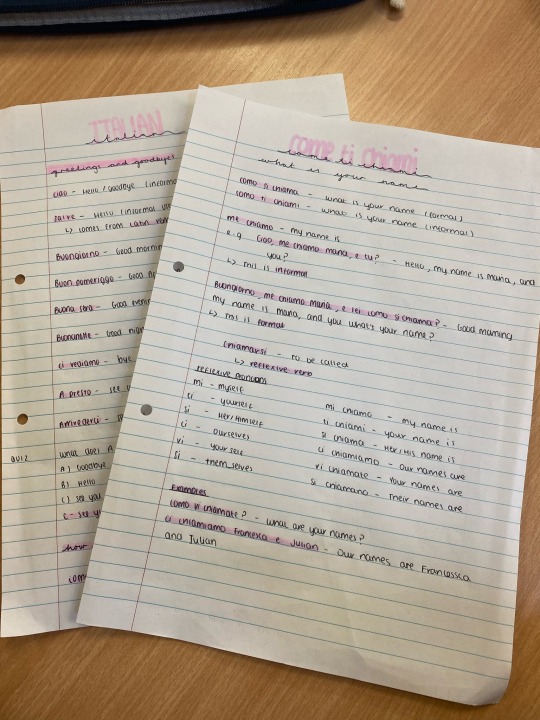 ITALIAN
italian
greetings and goodbyes
ciao - Hello / Goodbye (informal
salve - Hello (informal
↳ comes from Latin verb
Buongiorno - Good morning
Buon pomeriggio - Good
Buona sera - Good evening
Buonanotte - Good night
ci vediamo - bye
A presto - see
Arrivederci -
QUIZ what does A
A) Goodbye
B) Hello
C) see you
how
come ti chiami
come ti chiami
what is your name
como si chiama - what is your name (formal)
como ti chiami - what is your name (informal)
me chiamo - my name is
e.g Ciao, me chiamo maria, e tu? - Hello, my name is maria, and
you?
↳ this is informal
Buongiorno, me chiamo maria, e lei como si chiama? - Good morning
my name is maria, and you what's your name?
↳ this is formal
chiamarsi - to be called
↳ reflexive verb
reflexive pronouns
mi - myself
ti - yourself
si - Her/Himself
ci - ourselves
vi - yourself
si - themselves
mi chiamo - my name is
ti chiami - your name is
si chiama - Her/His name is
ci chiamiamo - Our names are
vi chiamate - Your names are
si chiamano - Their names are
Examples
como vi chiamate? - what are your names?
ci chiamiamo Francesca e Julian - Our names are Francessca
and Julian